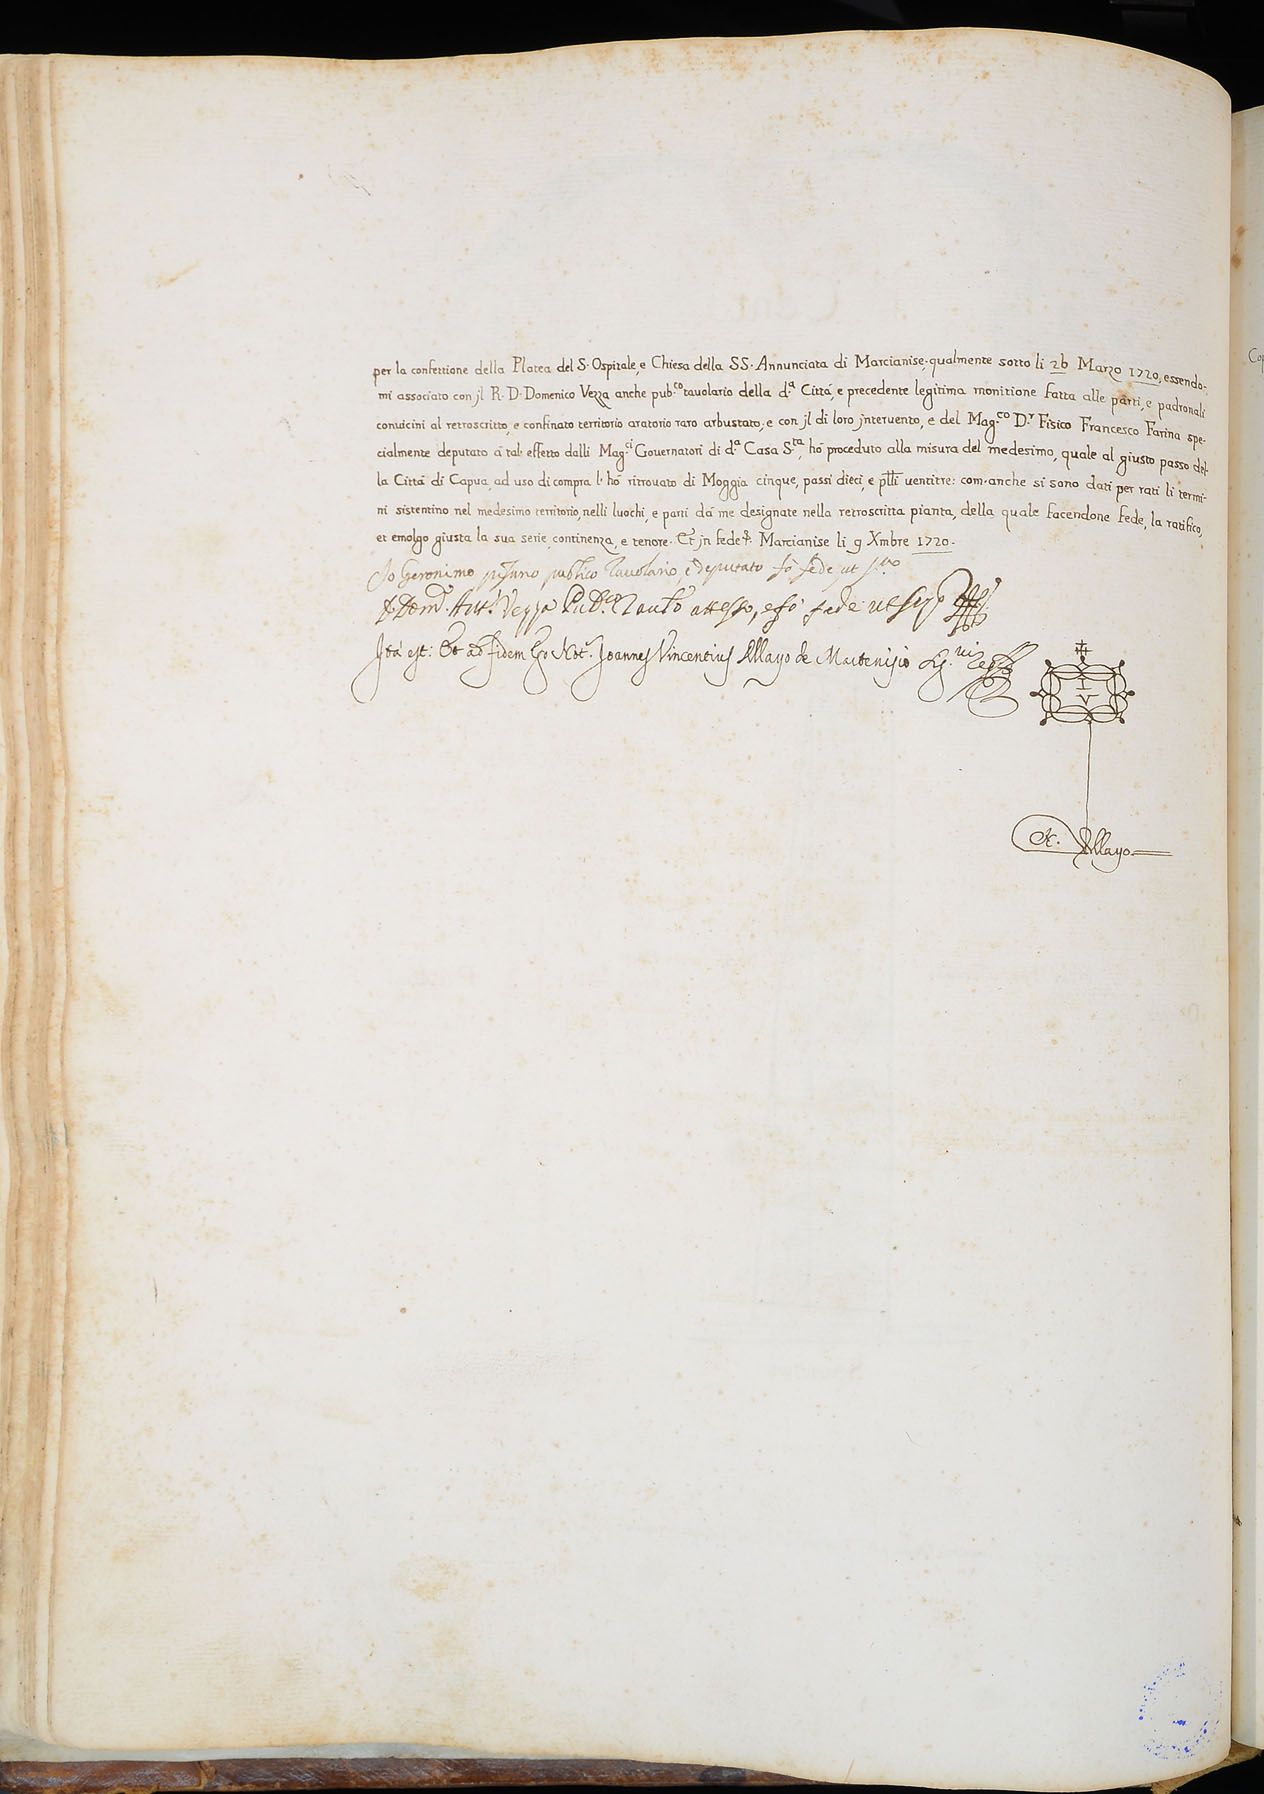 per la confettione della Platea del S. Ospitale, e Chiesa della SS. Annunciata di Marcianise, qualmente sotto li 26 Marzo 1720, essendo-
mi associato con jl R. D. Domenico Vezza anche pub.co tauolario della d.a Cittá, e precedente legitima monitione fatta alle parti, e padronali
conuicini al retroscritto, e confinato territorio aratorio raro arbustato, e con jl di loro jnteruento, e del Mag.co D.r Fisico Francesco Farina spe-
cialmente deputato á tal' effetto dalli Mag.ci Gouernatori di d.a Casa S.ta, hó proceduto alla misura del medesimo, quale al giusto passo del-
la Cittá di Capua, ad uso di compra l'hó ritrouato di Moggia cinque, passi dieci, e p̄lli uentitre: com'anche si sono dati per rati li termi-
ni sistentino nel medesimo territorio, nelli luochi, e parti dá me designate nella retroscritta pianta, della quale facendone fede, la ratifico,
et emolgo giusta la sua serie, continenza, e tenore. Et jn fede Marcianise li 9 Xmbre 1720.
Jo Geronimo publico Tauolario, e deputato fó fede ut
Vezza Pub.co attesto, e fó fede ut
Jtá est: Et ad fidem Ego Not.r Joannes Vincentius Allayo de Martenisio
I
V
N. Allayo